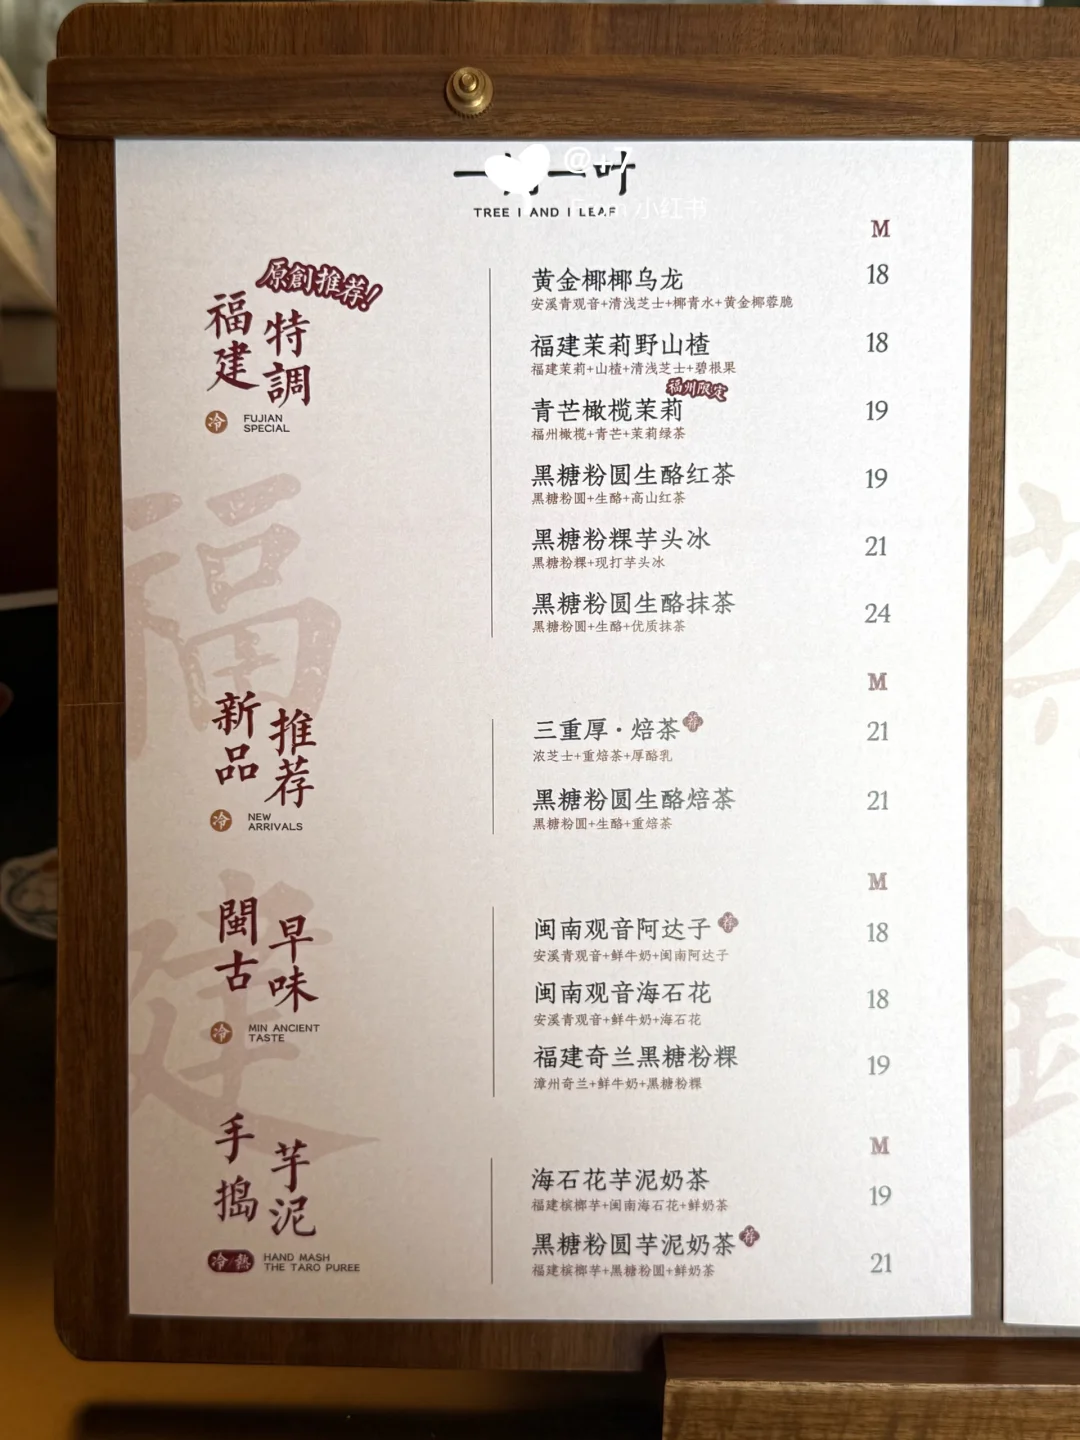 @+7
一 一叶
小红书
TREE I AND I LEAF
原創推荐!
福建
特調
冷
FUJIAN
SPECIAL
M
黄金椰椰乌龙 18
安溪青观音+清浅芝士+椰青水+黄金椰蓉脆
福建茉莉野山楂 18
福建茉莉+山楂+清浅芝士+碧根果
福州限定
青芒橄榄茉莉 19
福州橄榄+青芒+茉莉绿茶
黑糖粉圆生酪红茶 19
黑糖粉圆+生酪+高山红茶
黑糖粉粿芋头冰 21
黑糖粉粿+现打芋头冰
黑糖粉圆生酪抹茶 24
黑糖粉圆+生酪+优质抹茶
福建
新品
推荐
冷
NEW
ARRIVALS
M
三重厚·焙茶 荐 21
浓芝士+重焙茶+厚酪乳
黑糖粉圆生酪焙茶 21
黑糖粉圆+生酪+重焙茶
閩古
早味
冷
MIN ANCIENT
TASTE
M
闽南观音阿达子 荐 18
安溪青观音+鲜牛奶+闽南阿达子
闽南观音海石花 18
安溪青观音+鲜牛奶+海石花
福建奇兰黑糖粉粿 19
漳州奇兰+鲜牛奶+黑糖粉粿
手搗
芋泥
冷/熱
HAND MASH
THE TARO PUREE
M
海石花芋泥奶茶 19
福建槟榔芋+闽南海石花+鲜奶茶
黑糖粉圆芋泥奶茶 荐 21
福建槟榔芋+黑糖粉圆+鲜奶茶